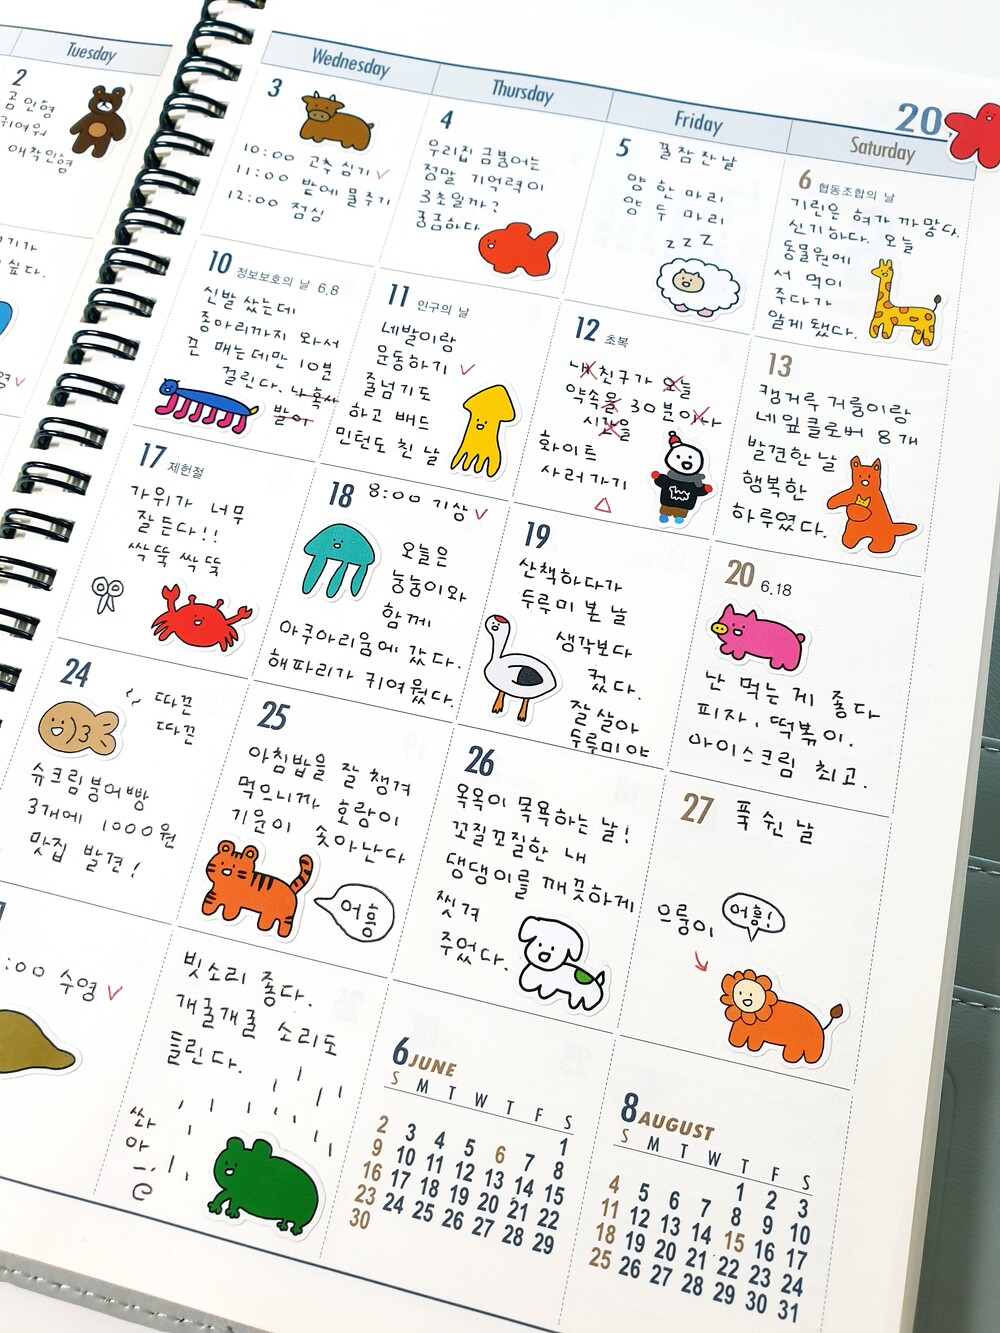 Tuesday
Wednesday
Thursday
Friday
Saturday
20
2
곰인형
귀여워
애착인형
3
10:00 고추 심기 ✓
11:00 밭에 물주기
12:00 점심
4
우리집 금붕어는
정말 기억력이
3초일까?
궁금하다
5 꿀잠 잔 날
양 한 마리
양 두 마리
z z z
6 협동조합의 날
기린은 혀가 까맣다.
신기하다. 오늘
동물원에
서 먹이
주다가
알게 됐다.
싶다.
10 정보보호의 날 6.8
신발 샀는데
종아리까지 와서
끈 매는데만 10분
걸린다.
11 인구의 날
네발이랑
운동하기 ✓
줄넘기도
하고 배드
민턴도 친 날
12 초복
내 친구가 오늘
약속을 30분이나
시간을
화이트
사러가기
△
13
캥거루 거룰이랑
네잎클로버 8개
발견한 날
행복한
하루였다.
17 제헌절
가위가 너무
잘 든다!!
싹뚝 싹뚝
18 8:00 기상 ✓
오늘은
눙눙이와
함께
아쿠아리움에 갔다.
해파리가 귀여웠다.
19
산책하다가
두루미 본 날
생각보다
컸다.
잘 살아
두루미야
20 6.18
난 먹는 게 좋다
피자, 떡볶이.
아이스크림 최고.
24
따끈
따끈
슈크림붕어빵
3개에 1000원
맛집 발견!
25
아침밥을 잘 챙겨
먹으니까 호랑이
기운이 솟아난다
어흥
26
옥옥이 목욕하는 날!
꼬질꼬질한 내
댕댕이를 깨끗하게
씻겨
주었다.
27 푹 쉰 날
어흥!
으룽이
:00 수영 ✓
빗소리 좋다.
개굴개굴 소리도
들린다.
쏴
아
6 JUNE
S M T W T F S
1
2 3 4 5 6 7 8
9 10 11 12 13 14 15
16 17 18 19 20 21 22
23 24 25 26 27 28 29
30
8 AUGUST
S M T W T F S
1 2 3
4 5 6 7 8 9 10
11 12 13 14 15 16 17
18 19 20 21 22 23 24
25 26 27 28 29 30 31